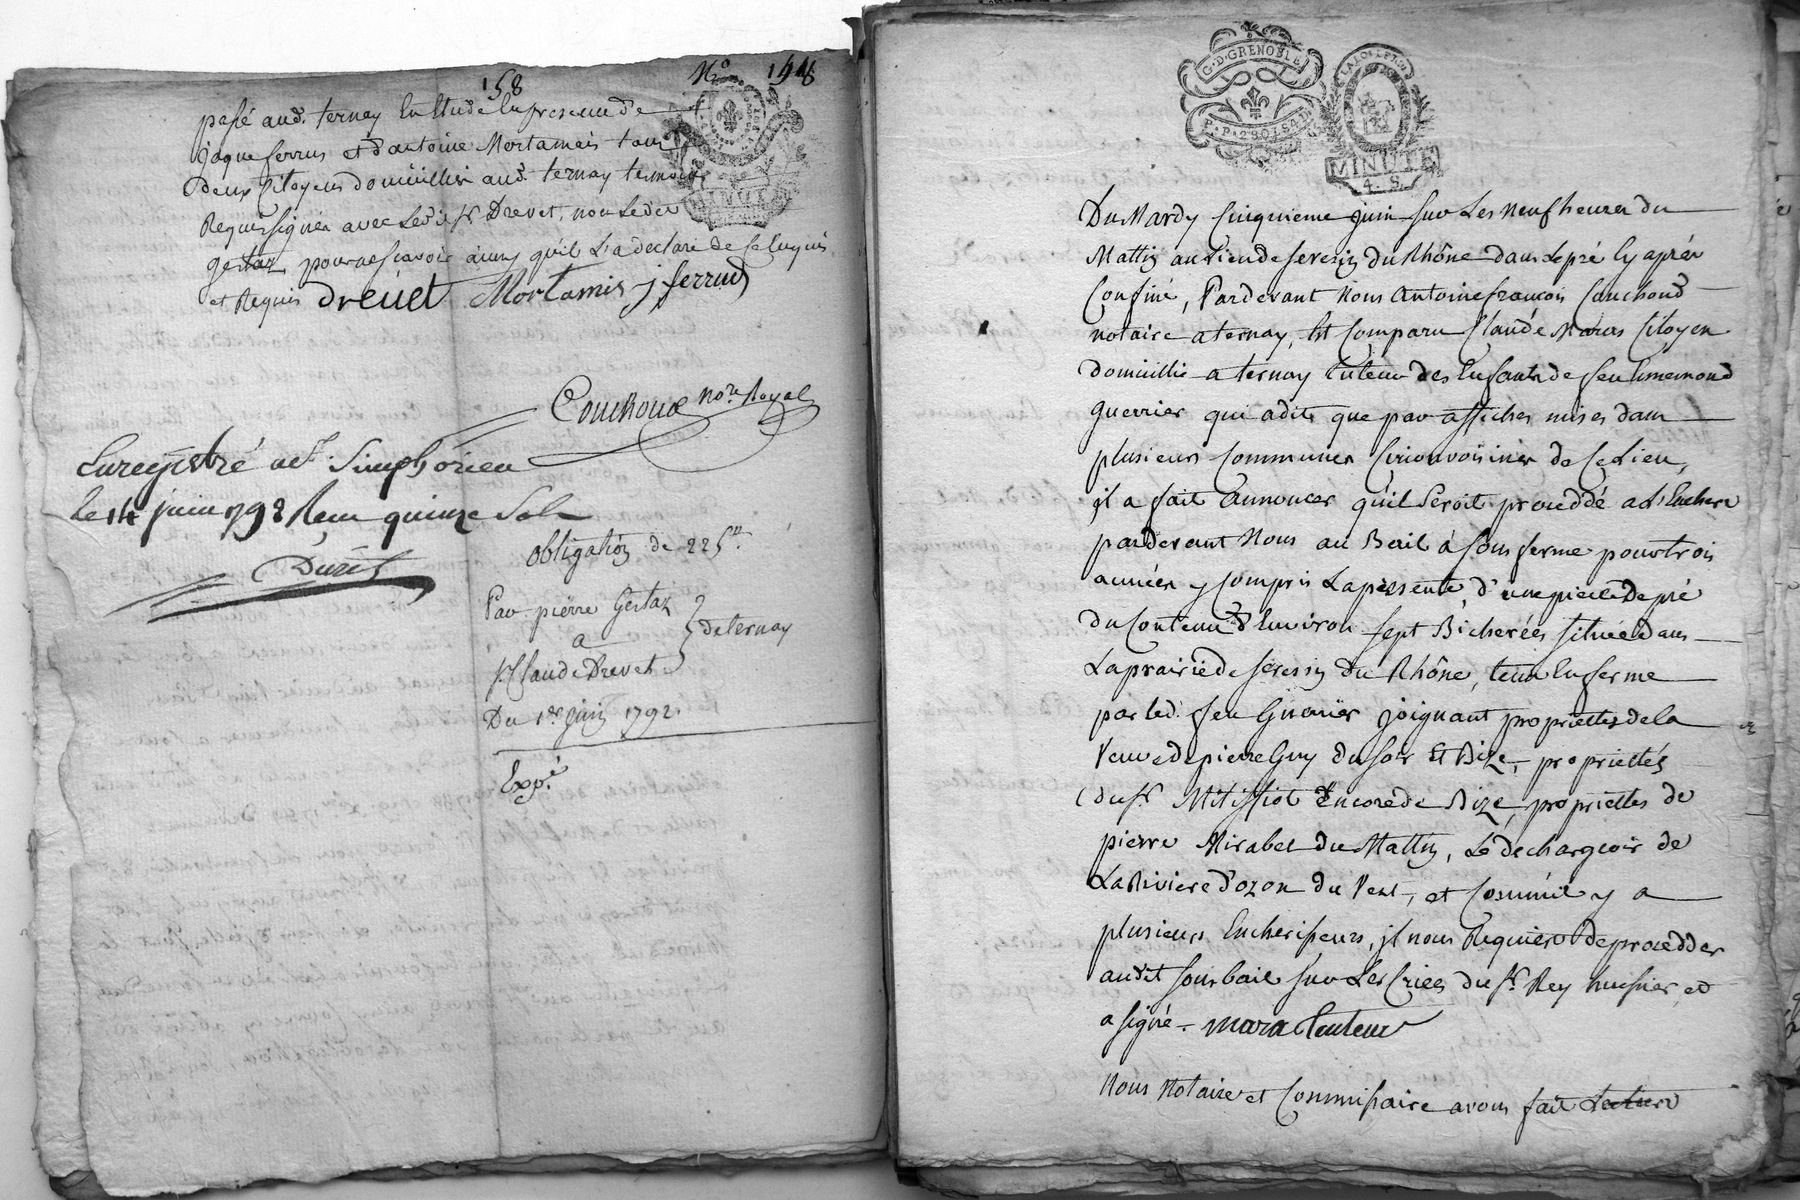 158
No 148
passé aud. ternay En Etude En presence de
jaque ferrus et d'antoine Mortamais tous
deux Citoyens domicilliés aud. ternay temoins
Requis signés avec Led. sr Drevet, non Ledit
gertaz pour ne scavoir ainsy qu'il L'a declaré de Ce Enquis
et Requis drevet Mortamis j ferrus
Couchoud nore Royal
Enregistré a st. Simphorien
le 14 juin 1792 Reçu quinze Sols
obligation de 225ll.
Par pierre Gertaz
a
de ternay
sr Claude Drevet
Du 1er juin 1792.
Expé.
G.D. GRENOBLE
MINUTE
4. S.
Du Mardy Cinquieme juin sur Les Neuf heures du
Mattin au Lieu de seresin du Rhône dans Le pré Cy après
Confiné, Pardevant Nous Antoine françois Couchoud
notaire a ternay, Est Comparu Claude Maras Citoyen
domicillié a ternay tuteur des Enfants de feu Ennemond
guerrier qui a dit que par affiches mises dans
plusieurs Communes Circonvoisines de Ce Lieu,
il a fait annoncer qu'il Seroit proceddé a L'Enchere
pardevant Nous au Bail a sous ferme pour trois
années y compris La presente, d'une piece de pré
du Contenu d'Environ sept Bicherées située dans
La prairie de seresin du Rhône, tenu En ferme
par led. feu Guerrier joignant proprietés de la
Veuve de pierre Guy du soir Et Bize, proprietés
du sr Mitiffiot Encore de Bize, proprietes de
pierre Mirabel du Mattin, Le dechargeoir de
La Riviere d'ozon du Vent, et Comme il y a
plusieurs Encherisseurs, jl nous Requiere de procedder
audit sous bail sur Les Criées du sr. Rey huissier, et
a signé. mara tuteur
Nous Notaire et Commissaire avons fait Lecture